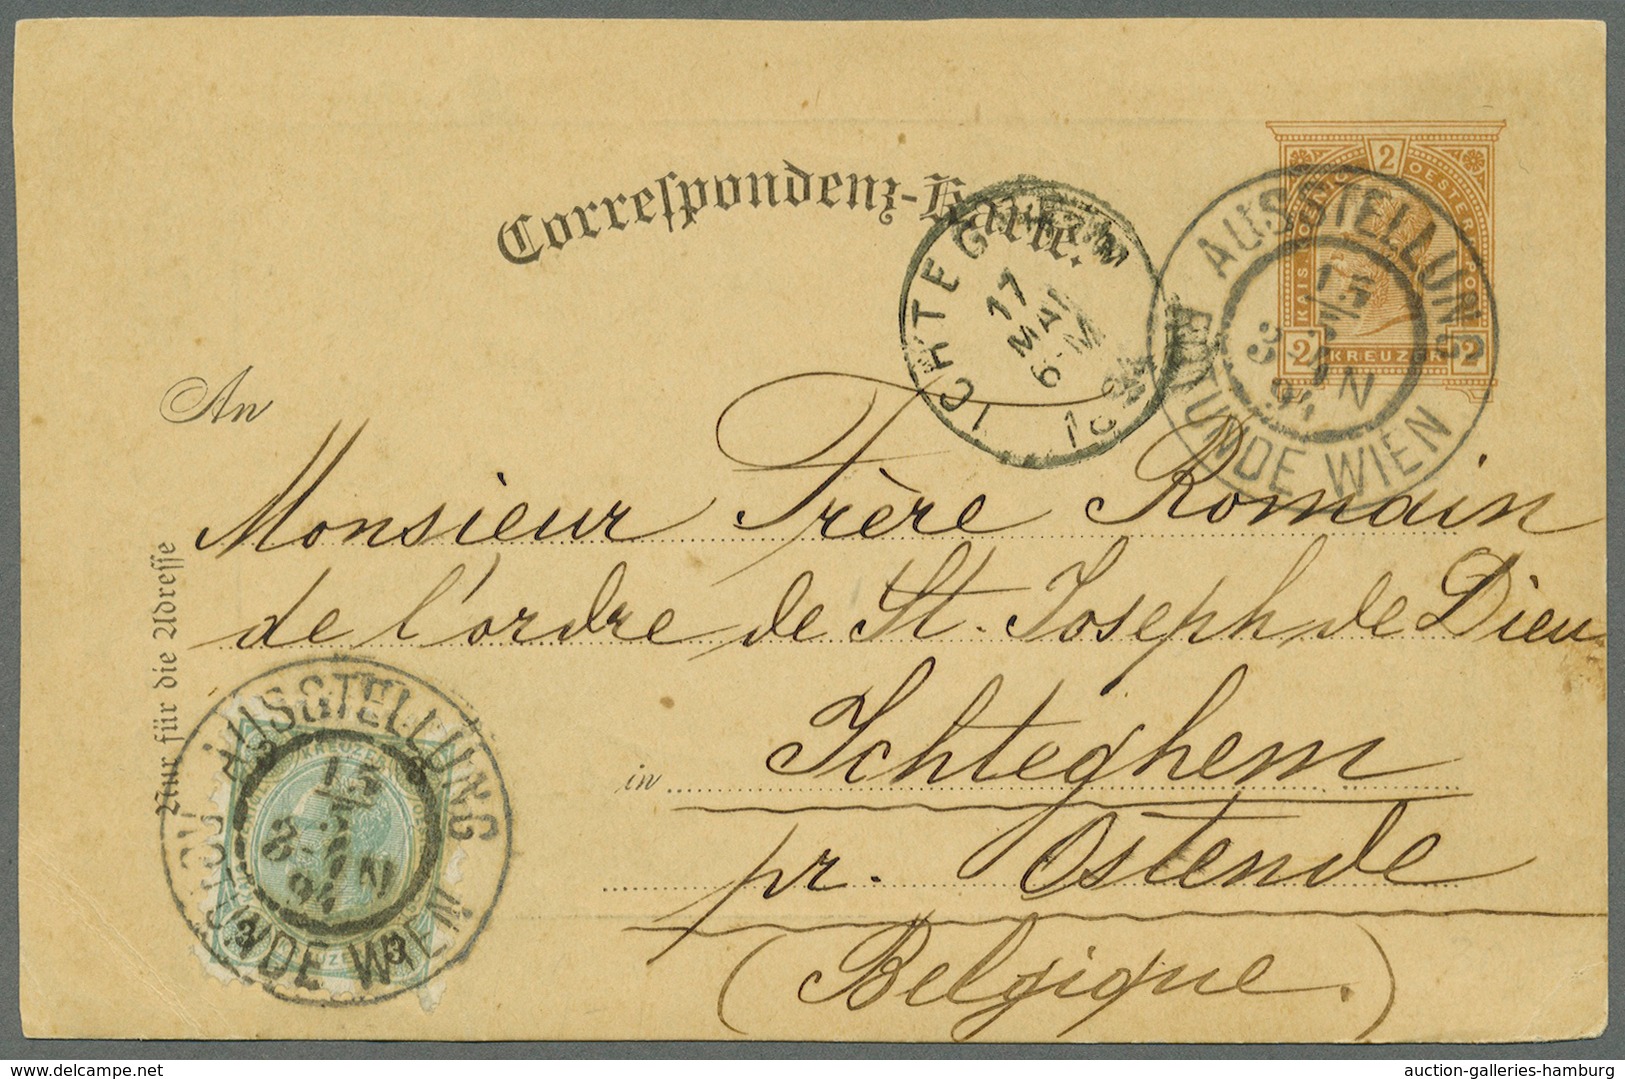 Correspondenz-Karte.
2
KREUZER
2
2
AUSSTELLUNG
15
3
N
94
WIEN
ICHTEGHEM
17
MAI
6-M
1894
An
Monsieur Frère Romain
de l'ordre de St. Joseph de Dieu
in Ichteghem
pr. Ostende
(Belgique.)
Nur für die Adresse
AUSSTELLUNG
15
3
N
94
WIEN
delcampe.net
auction-galleries-hamburg